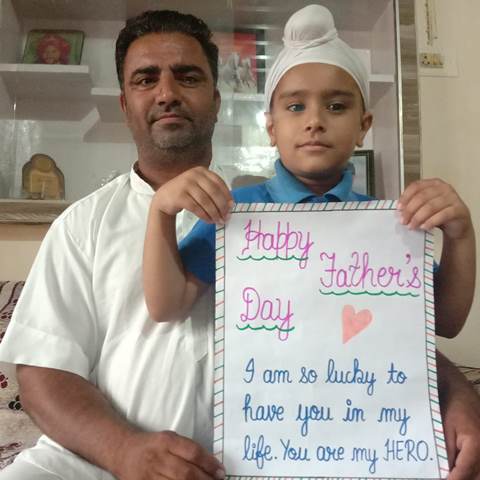 Happy
Father's
Day
I am so lucky to
have you in my
life. You are my HERO.